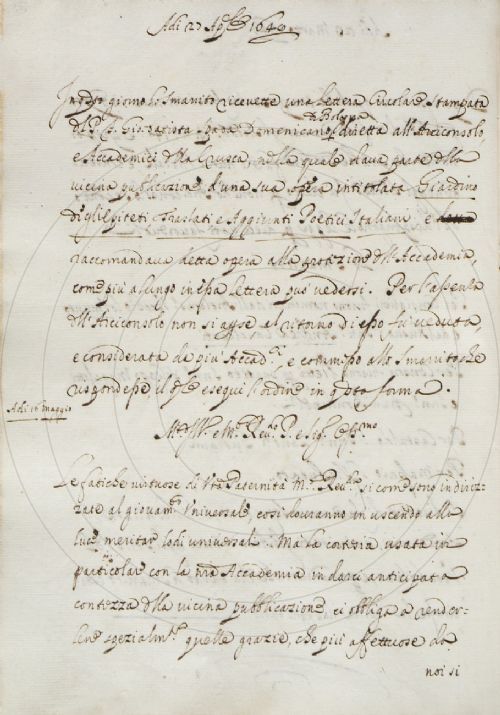 Adi 27 Aple 1640
In dto giorno lo Smarrito ricevette una lettera Circolare stampata
da Bologna
dal P. F. Gio: Batista Spada Domenicano, diretta all'Arciconsolo,
e Accademici dlla Crusca, nella quale dava parte dlla
vicina pubblicazione d'una sua opera intitolata Giardino
degli Epiteti Traslati e Aggiunti Poetici Italiani e
raccomandava detta opera alla protezione dll'Accademia,
come più a lungo in essa lettera può vedersi. Per l'assenza
dll'Arciconsolo non si aperse al ritorno di esso fu veduta,
e considerata da più Accadci, e commesso allo Smarrito che
rispondesse, il qle eseguì l'ordine in qsta forma.
Adi 16 Maggio
M.to Ill.re e M.to Reu.do P. e Sig.
Le fatiche virtuose di Vra Paternità M.to Reu.da si come sono indiriz-
zate al giovamto Universale, così dovranno in uscendo alla
luce meritar lodi universali. Ma la cortesia usata in
particolare con la nra Accademia in darci anticipata
contezza dlla vicina pubblicazione, ci obbliga a render-
lene spezialmte quelle grazie, che più affettuose da
noi si